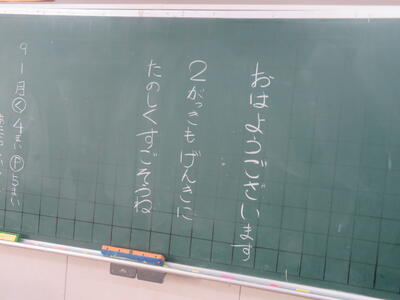 おはようございます
2がっきもげんきに
たのしくすごそうね
9
1月く4まい